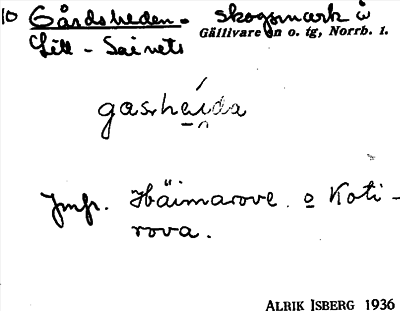 10 Gårdsheden - skogsmark å
Gällivare sn o. tg, Norrb. l.
Lill - Saivets
gasrhei̯da
Jmfr. Häimarove. o Koti -
rova.
ALRIK ISBERG 1936